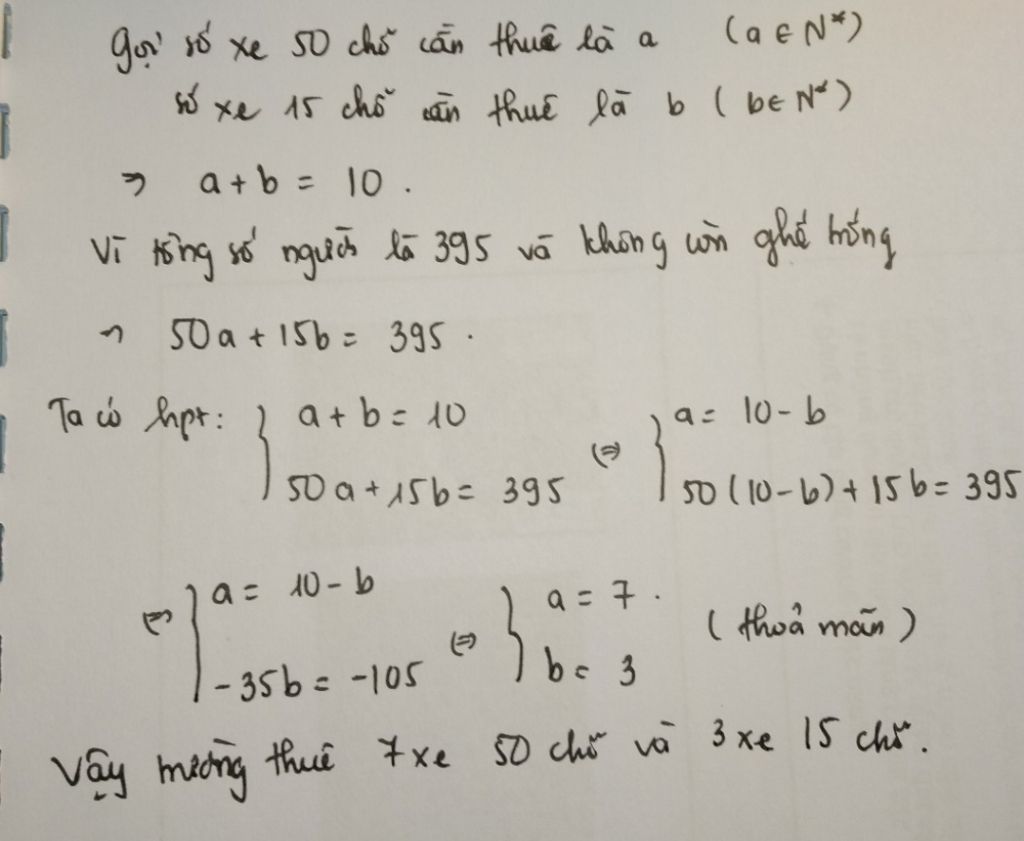 Gọi số xe 50 chỗ cần thuê là a (a ∈ N*)
số xe 15 chỗ cần thuê là b (b ∈ N*)
=> a + b = 10.
Vì tổng số người là 395 và không còn ghế trống
=> 50a + 15b = 395.
Ta có hpt: { a + b = 10 (=) { a = 10 - b
50a + 15b = 395 50(10-b) + 15b = 395
(=) { a = 10 - b (=) { a = 7. (thoả mãn)
-35b = -105 b = 3
Vậy trường thuê 7 xe 50 chỗ và 3 xe 15 chỗ.